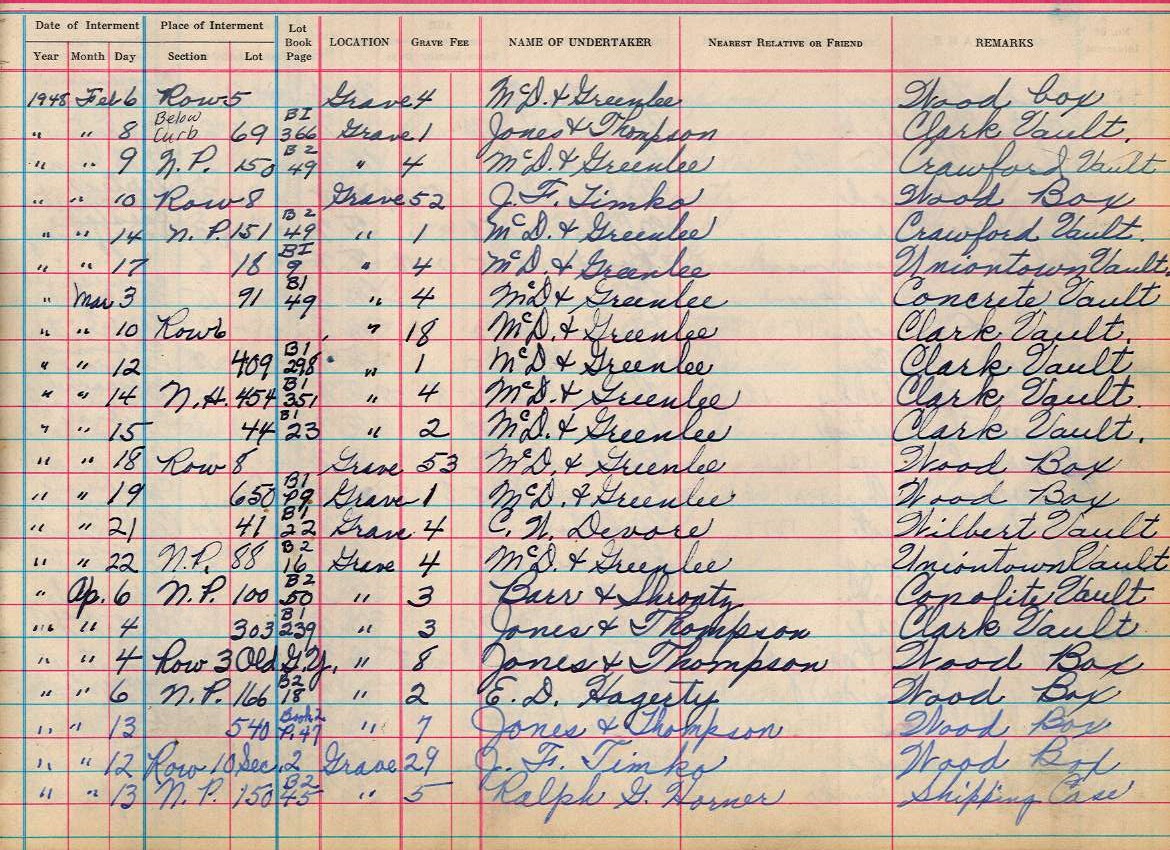 Date of Interment Place of Interment Lot Book Page LOCATION GRAVE FEE NAME OF UNDERTAKER NEAREST RELATIVE OR FRIEND REMARKS
Year Month Day Section Lot
1948 Feb 6 Row 5 Grave 4 McD. & Greenlee Wood box
" " 8 Below Curb 69 B1 366 Grave 1 Jones & Thompson Clark Vault.
" " 9 N.P. 150 B2 49 " 4 McD. & Greenlee Crawford Vault
" " 10 Row 8 Grave 52 J. F. Timko Wood Box
" " 14 N.P. 151 B2 49 " 1 McD. & Greenlee Crawford Vault.
" " 17 18 B1 9 " 4 McD. & Greenlee Uniontown Vault.
" Mar 3 91 B1 49 " 4 McD & Greenlee Concrete Vault
" " 10 Row 6 " 18 McD. & Greenlee Clark Vault.
" " 12 409 B1 298 " 1 McD. & Greenlee Clark Vault
" " 14 N.H. 454 B1 351 " 4 McD. & Greenlee Clark Vault.
" " 15 44 B1 23 " 2 McD. & Greenlee Clark Vault.
" " 18 Row 8 Grave 53 McD. & Greenlee Wood Box
" " 19 650 B1 P9 Grave 1 McD. & Greenlee Wood Box
" " 21 41 B1 22 Grave 4 C. W. Devore Wilbert Vault
" " 22 N.P. 88 B2 16 Grave 4 McD. & Greenlee Uniontown Vault
" Ap. 6 N.P. 100 B2 50 " 3 Barr & Vault
" " 4 303 B1 239 " 3 Jones & Thompson Clark Vault
" " 4 Row 3 Old G.Y. " 8 Jones & Thompson Wood Box
" " 6 N.P. 166 B2 18 " 2 E. D. Hagerty Wood Box
" " 13 540 Book 2 P. 47 " 7 Jones & Thompson Wood Box
" " 12 Row 10 Sec. 2 Grave 29 J. F. Timko Wood Box
" " 13 N.P. 150 B2 45 " 5 Ralph G. Horner Shipping Case